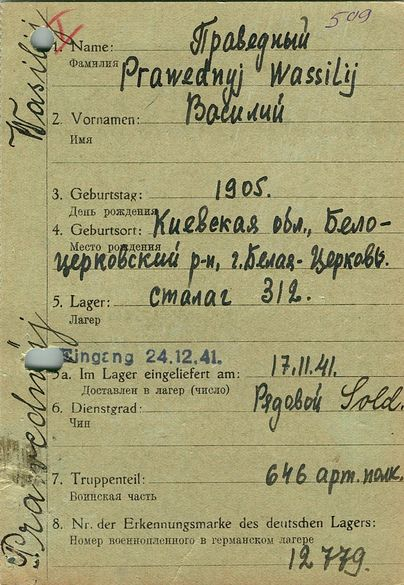 509
1. Name: Праведный
Фамилия Prawednyj Wassilij
2. Vornamen: Василий
Имя
3. Geburtstag: 1905.
День рождения
4. Geburtsort: Киевская обл., Бело-
Место рождения
церковский р-н, г. Белая-Церковь.
5. Lager: сталаг 312.
Лагер
Eingang 24.12.41.
5a. Im Lager eingeliefert am: 17.11.41.
Доставлен в лагер (число)
6. Dienstgrad: Рядовой Sold.
Чин
7. Truppenteil: 646 арт. полк.
Воинская часть
8. Nr. der Erkennungsmarke des deutschen Lagers:
Номер военнопленного в германском лагере
12779.
Prawednyj Wasilij